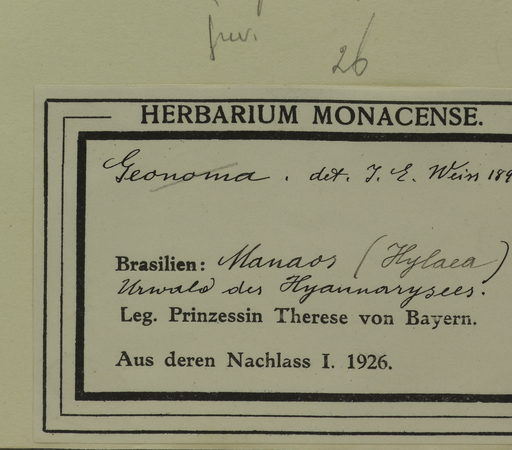 juv.
26
HERBARIUM MONACENSE.
Geonoma . det. J. E. Weiss 189
Brasilien: Manaos (Hylaea)
Urwald des Hyannarysees.
Leg. Prinzessin Therese von Bayern.
Aus deren Nachlass I. 1926.